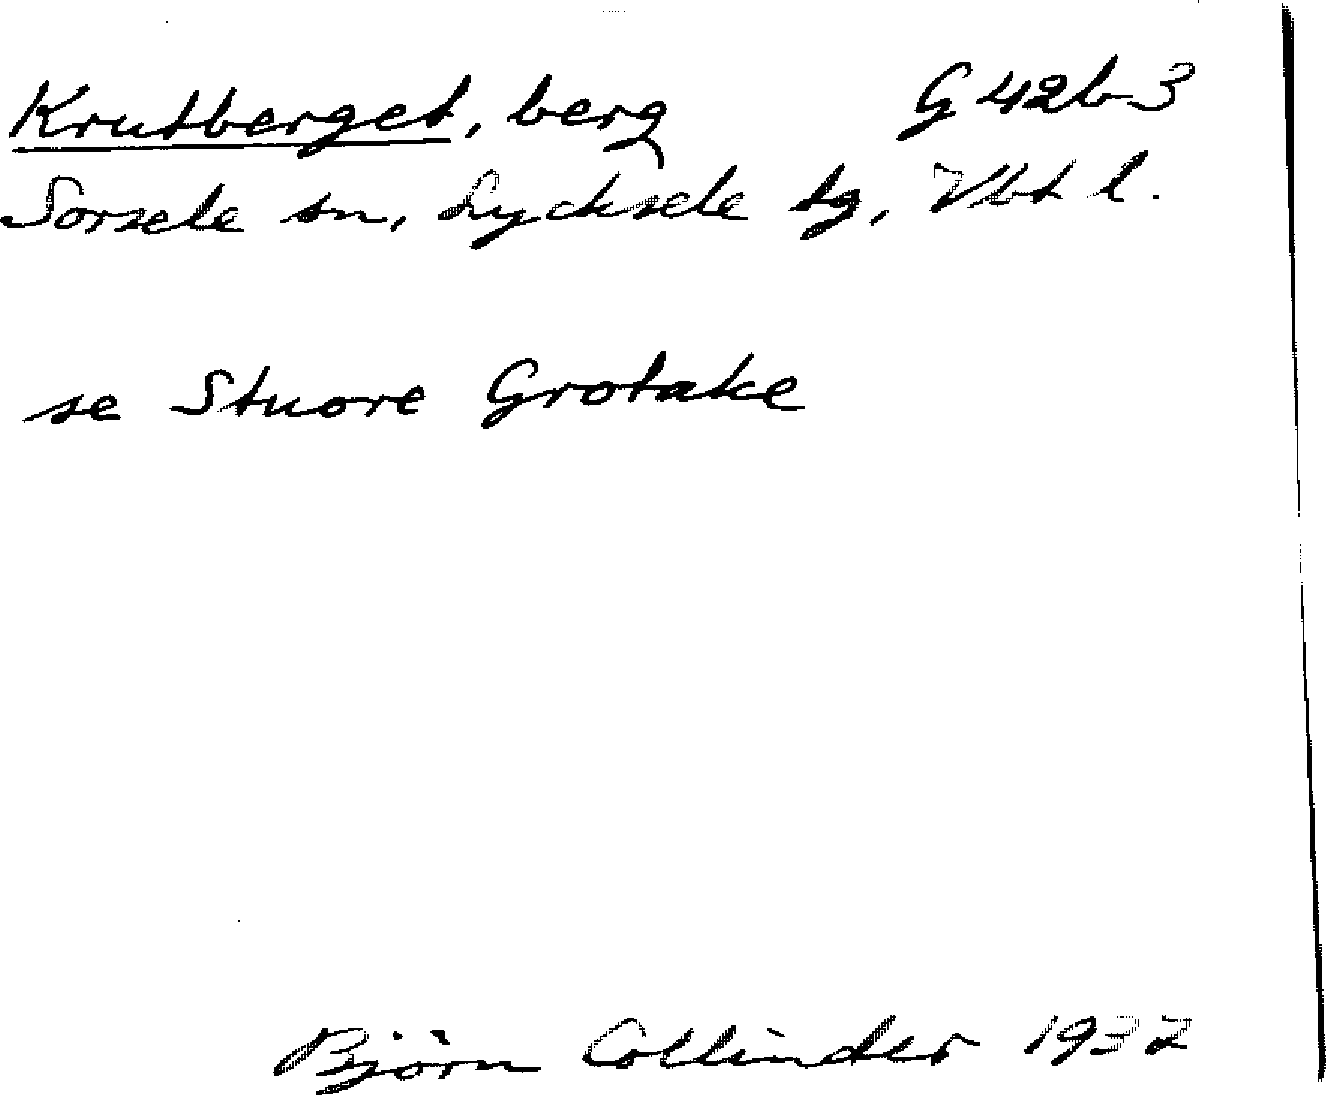 Krutberget, berg G 42b3
Sorsele sn, Lycksele tg, Vbt l.
se Stuore Grotake
Björn Collinder 1932